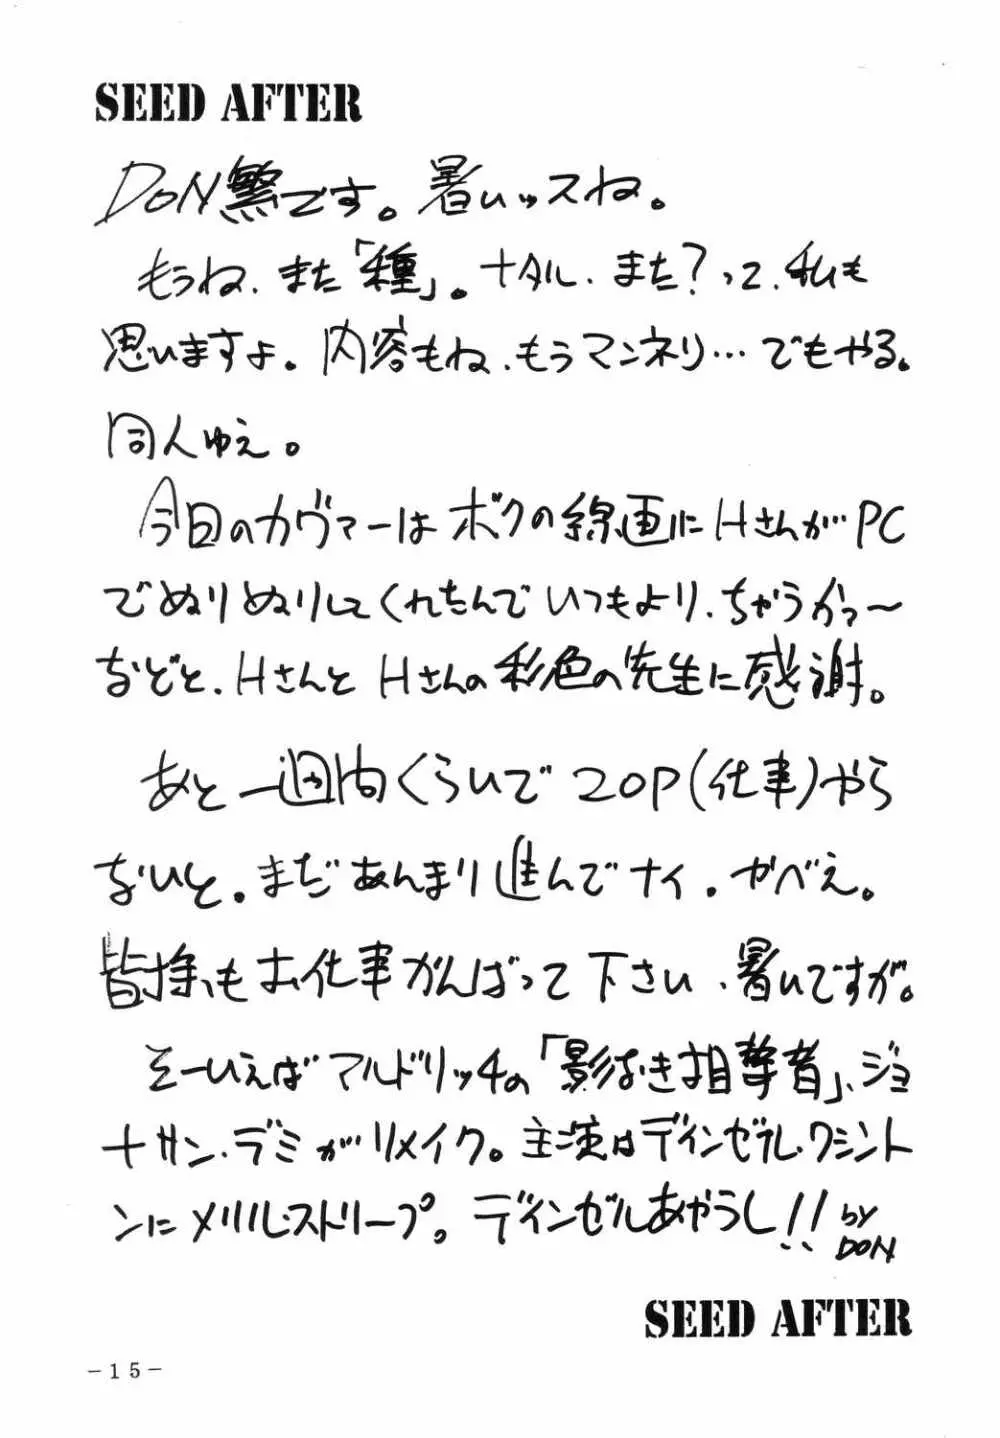 SEED AFTER
DON繁です。暑いッスね。
もうね、また「種」。ナタル、また?って、私も
思いますよ。内容もね、もうマンネリ…でもやる。
同人ゆえ。
今回のカヴァーはボクの線画にHさんが…PC
でぬりぬりしてくれたんでいつもより、ちゃうかァ〜
などと、HさんとHさんの彩色の先生に感謝。
あと一週間くらいで20P(仕事)やら
ないと。まだあんまり進んでナイ。やべえ。
皆様もお仕事がんばって下さい、暑いですが。
そーいえばマルドリッチの「影なき狙撃者」、ジョ
ナサン・デミがリメイク。主演はデインゼル・ワシント
ンにメリル・ストリープ。デインゼルあやうし!!
by
DON
SEED AFTER
-15-